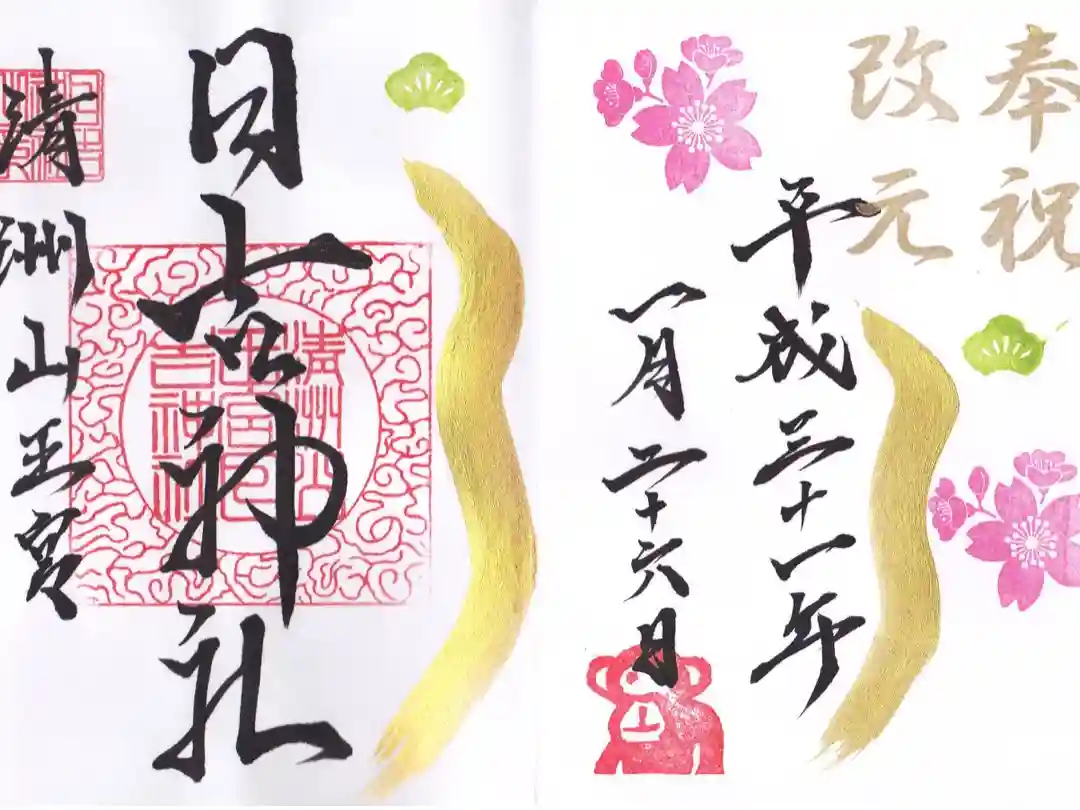 奉祝
改元
平成三十一年
一月二十六日
日吉神社
清洲山
王宮日
吉神社
清洲山王宮